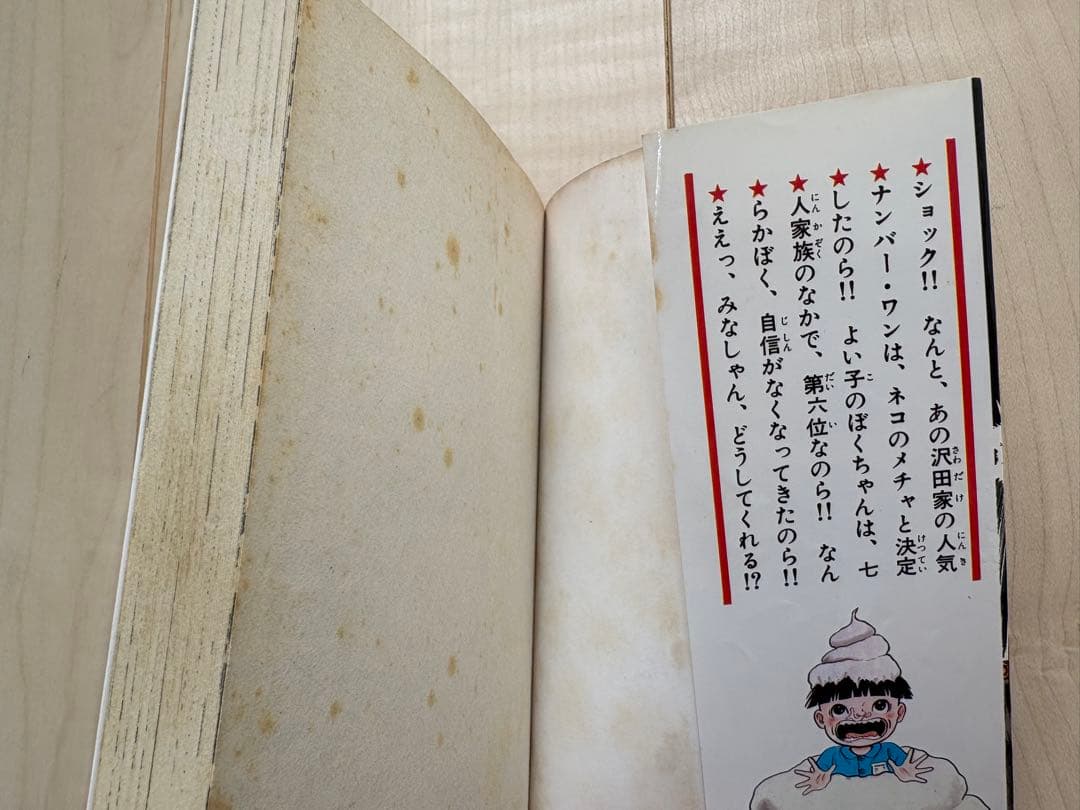 ★ショック!! なんと、あの沢田家の人気
★ナンバー・ワンは、ネコのメチャと決定
★したのら!! よい子のぼくちゃんは、七
★人家族のなかで、第六位なのら!! なん
★らかぼく、自信がなくなってきたのら!!
★ええっ、みなしゃん、どうしてくれる!?